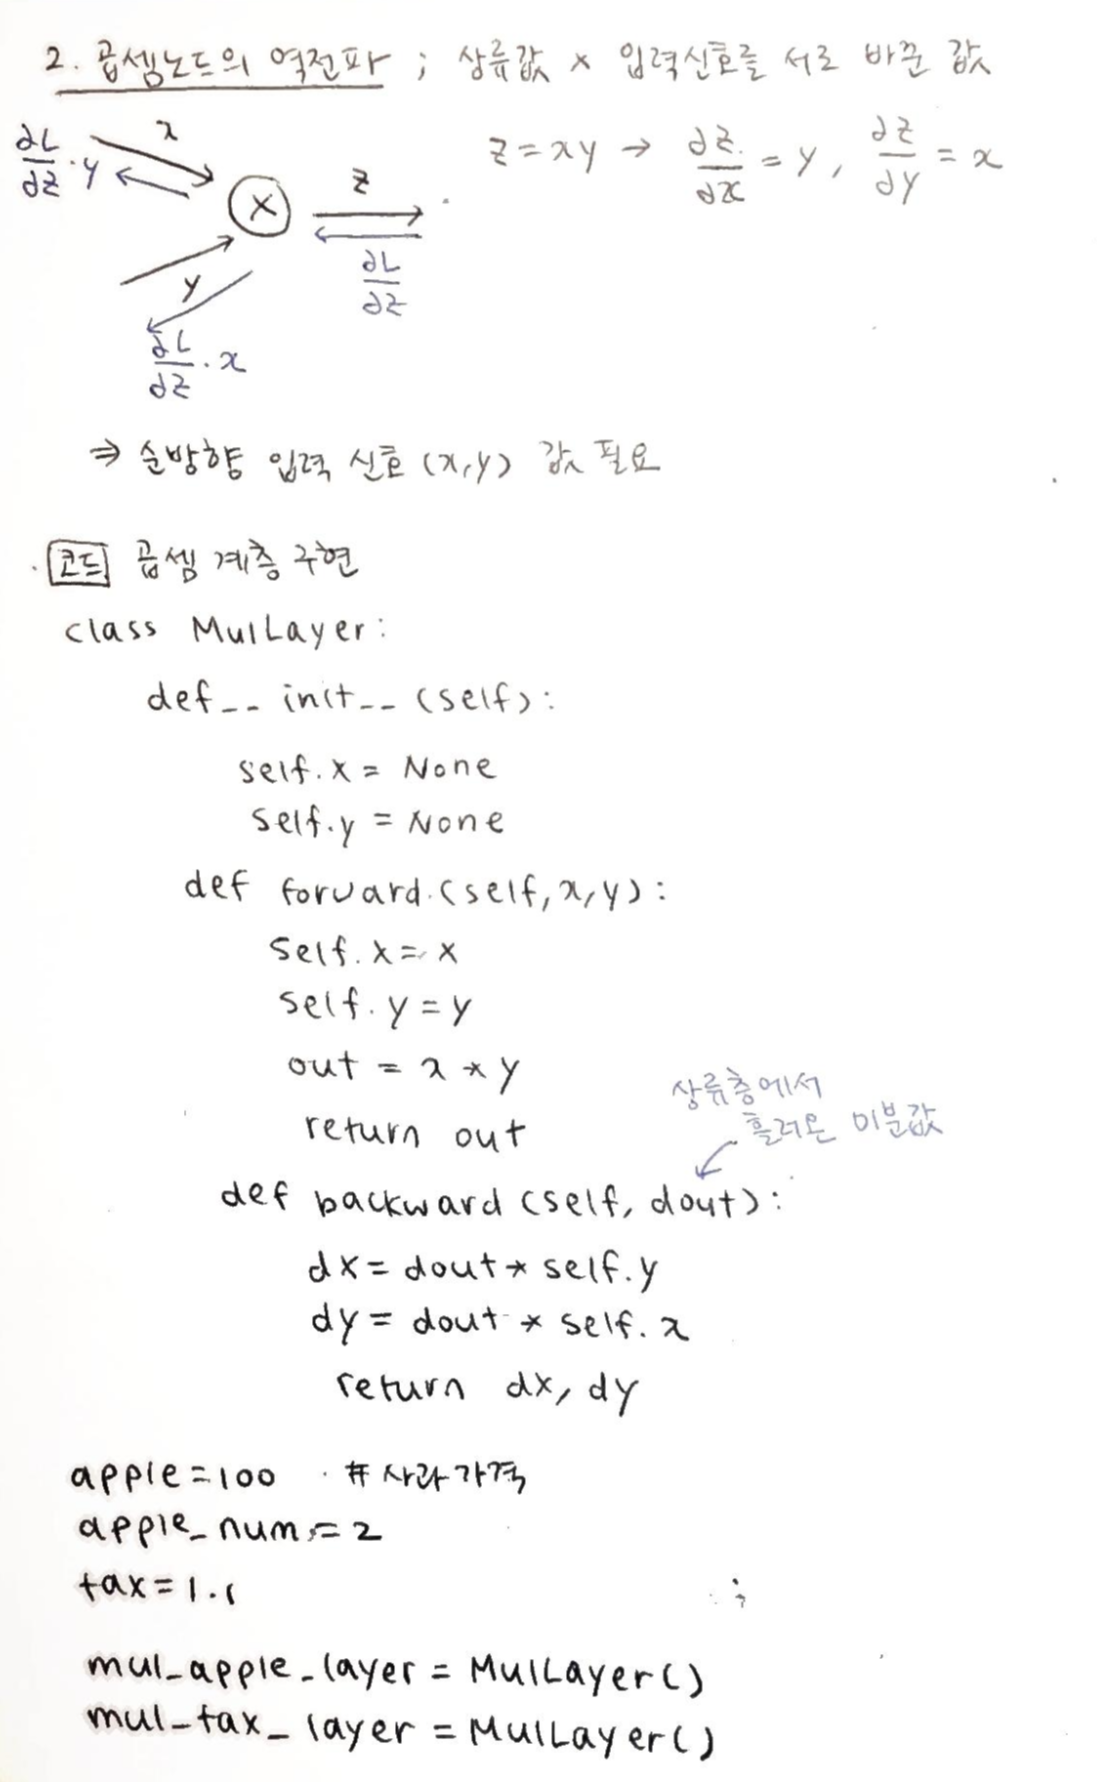 2. 곱셈노드의 역전파 ; 상류값 × 입력신호를 서로 바꾼 값
∂L/∂z · y
x
z = xy → ∂z/∂x = y, ∂z/∂y = x
×
z
∂L/∂z
y
∂L/∂z · x
⇒ 순방향 입력 신호 (x,y) 값 필요
코드 곱셈 계층 구현
class MulLayer:
def __init__(self):
self.x = None
self.y = None
def forward(self, x, y):
self.x = x
self.y = y
out = x * y
return out
상류층에서
흘러온 미분값
def backward (self, dout):
dx = dout * self.y
dy = dout * self.x
return dx, dy
apple = 100 # 사과 가격
apple_num = 2
tax = 1.1
mul_apple_layer = MulLayer()
mul_tax_layer = MulLayer()